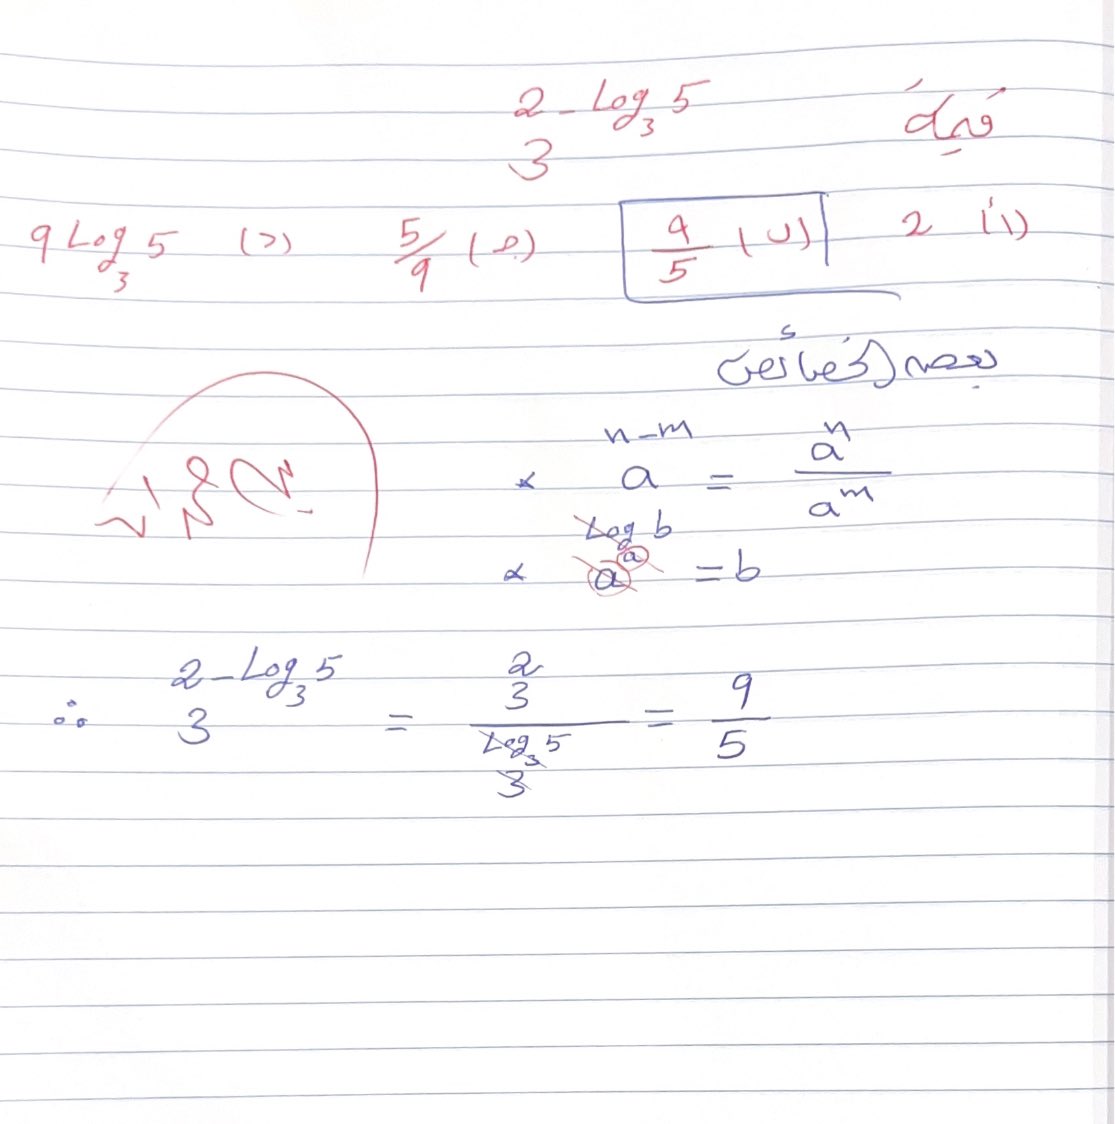 قيمة 3^{2 - Log_3 5}
(أ) 2 (ب) 9/5 (ج) 5/9 (د) 9 Log_3 5
* a^{n-m} = a^n / a^m
* a^{Log_a b} = b
∴ 3^{2 - Log_3 5} = 3^2 / 3^{Log_3 5} = 9/5